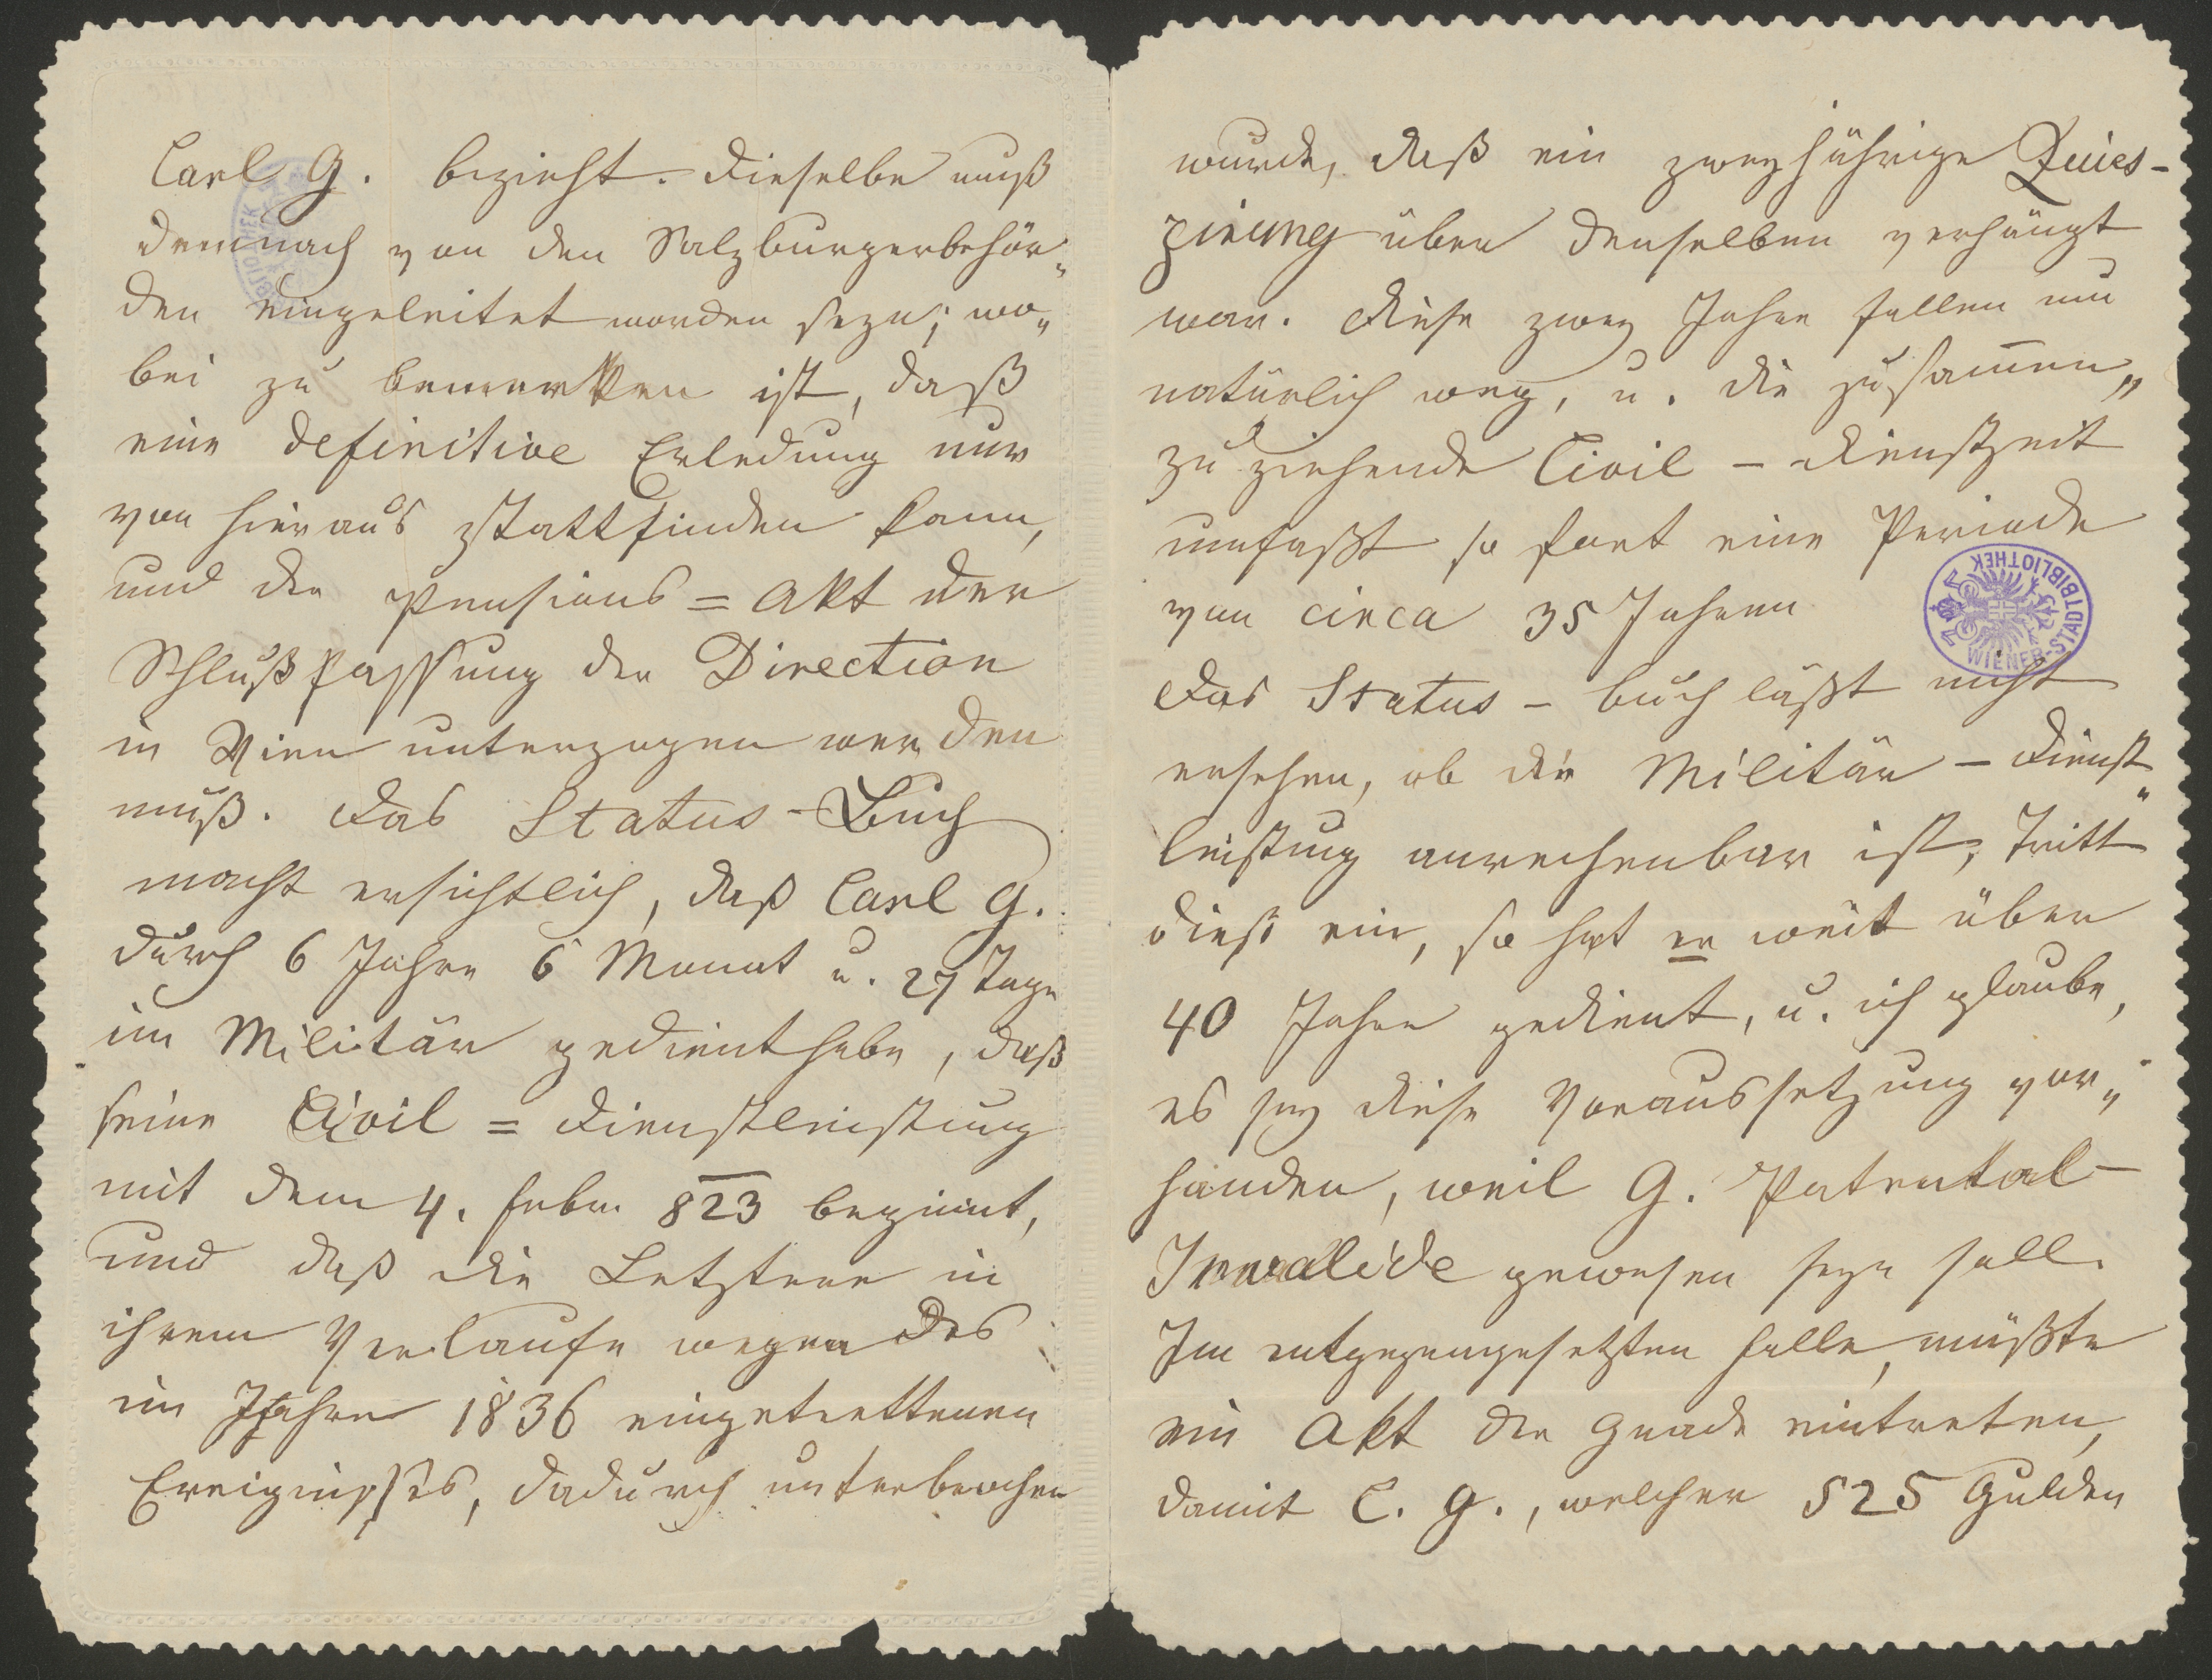 Carl G. bezieht. Dieselbe muß
demnach von den Salzburgerbehör„
den eingeleitet worden seyn; wo„
bei zu bemerken ist, daß
eine definitive Erledung nur
von hier aus stattfinden kann,
und der Pensions=Akt der
Schlußfassung der Direction
in Wien unterzogen werden
muß. Das Status-Buch
macht ersichtlich, daß Carl G.
durch 6 Jahre 6 Monat u. 27 Tage
im Militär gedient habe, daß
seine Civil=Dienstleistung
mit dem 4. Febr. 823 beginnt,
und daß die Letztere in
ihrem Verlaufe wegen des
im Jahre 1836 eingetrettenen
Ereignisses, dadurch unterbrochen
wurde, daß ein zweyjährige Quies-
zirung über denselben verhängt
war. Diese zwey Jahre fallen nun
natürlich weg, u. die zusammen„
zu ziehende Civil-Dienstzeit
umfaßt so fort eine Periode
von circa 35 Jahren
Das Status-buch läßt nicht
ersehen, ob die Militär-Dienst„
leistung anrechenbar ist, tritt
dieß ein, so hat er weit über
40 Jahre gedient, u. ich glaube,
es sey diese Voraussetzung vor„
handen, weil G. Patental-
Invalide gewesen seyn soll.
Im entgegengesetzten Falle, müßte
ein Akt der Gnade eintreten,
damit C. G., welcher 525 Gulden
WIENER-STADTBIBLIOTHEK